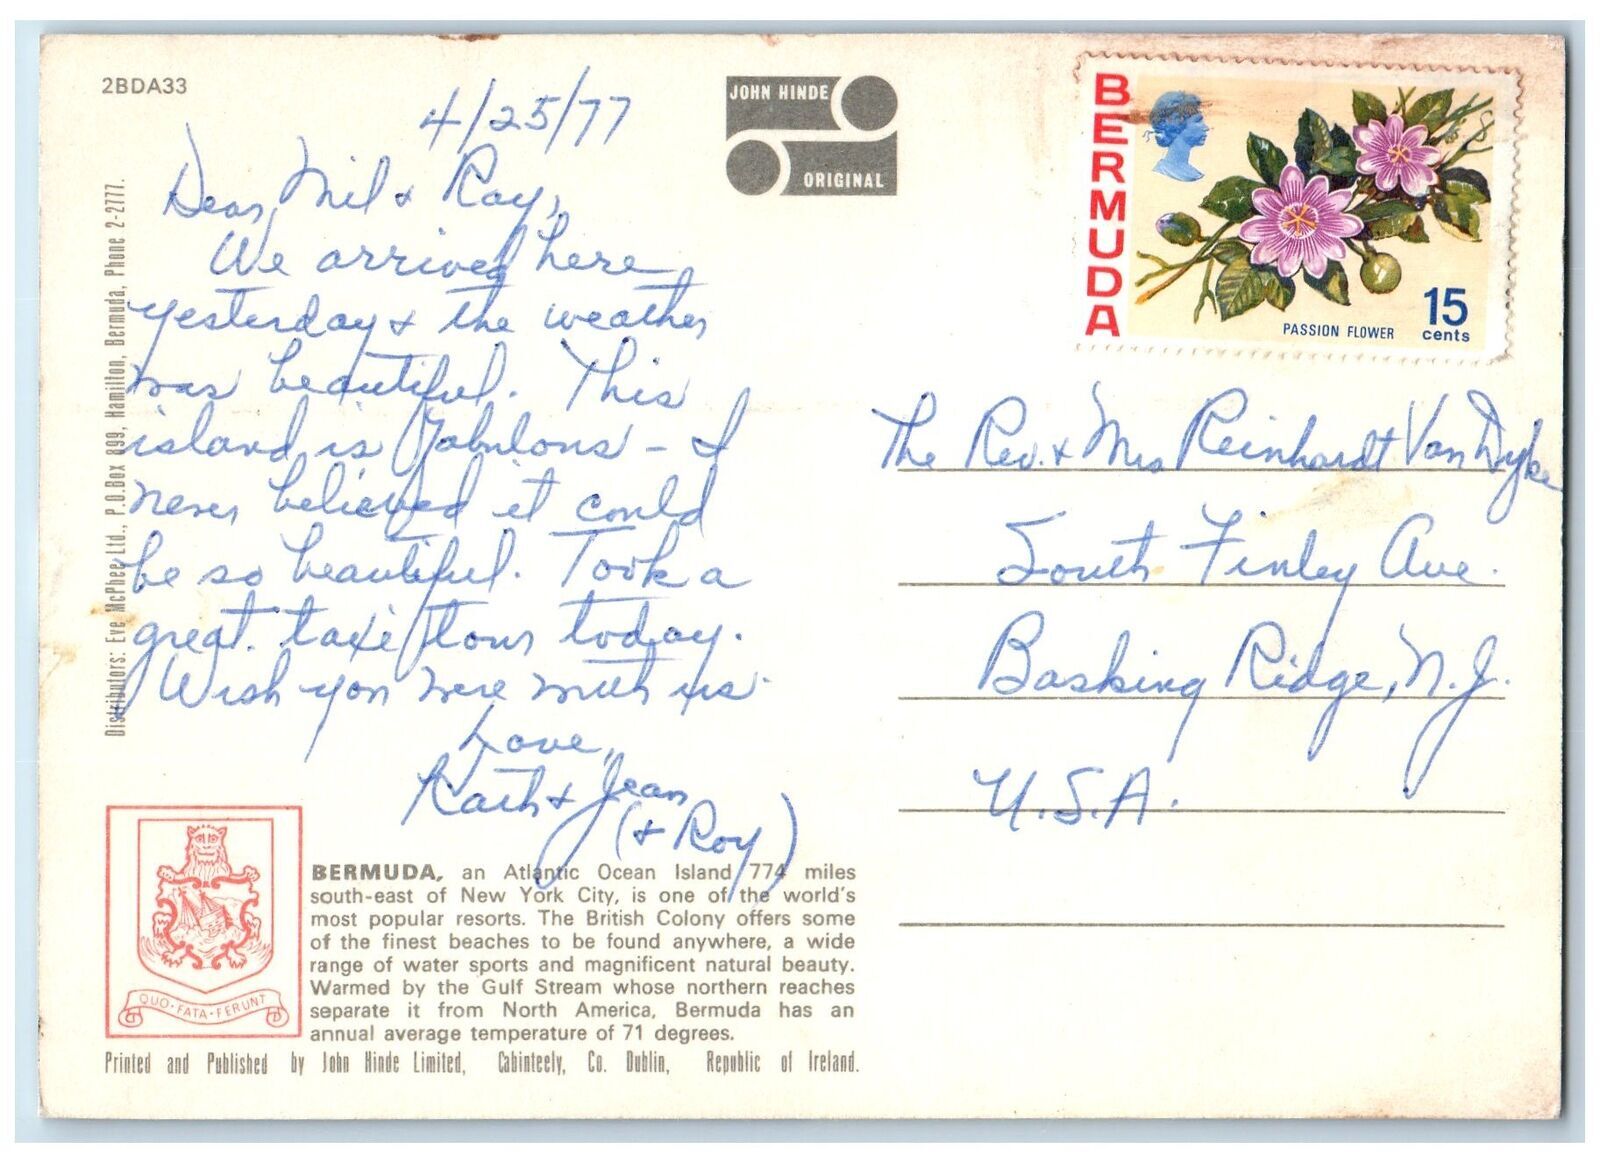 2BDA33
JOHN HINDE
ORIGINAL
BERMUDA
PASSION FLOWER
15
cents
4/25/77
Dear Mil & Ray,
We arrived here
yesterday & the weather
was beautiful. This
island is fabulous - I
never believed it could
be so beautiful. Took a
great taxi tour today.
Wish you were with us.
Love,
Kath & Jean
(& Roy)
The Rev. & Mrs Reinhardt Van Dyke
South Finley Ave.
Basking Ridge, N.J.
U.S.A.
Distributors: Eve McPhee Ltd., P.O.Box 899, Hamilton, Bermuda, Phone 2-2777.
QUO·FATA·FERUNT
BERMUDA, an Atlantic Ocean Island 774 miles
south-east of New York City, is one of the world's
most popular resorts. The British Colony offers some
of the finest beaches to be found anywhere, a wide
range of water sports and magnificent natural beauty.
Warmed by the Gulf Stream whose northern reaches
separate it from North America, Bermuda has an
annual average temperature of 71 degrees.
Printed and Published by John Hinde Limited, Cabinteely, Co. Dublin, Republic of Ireland.